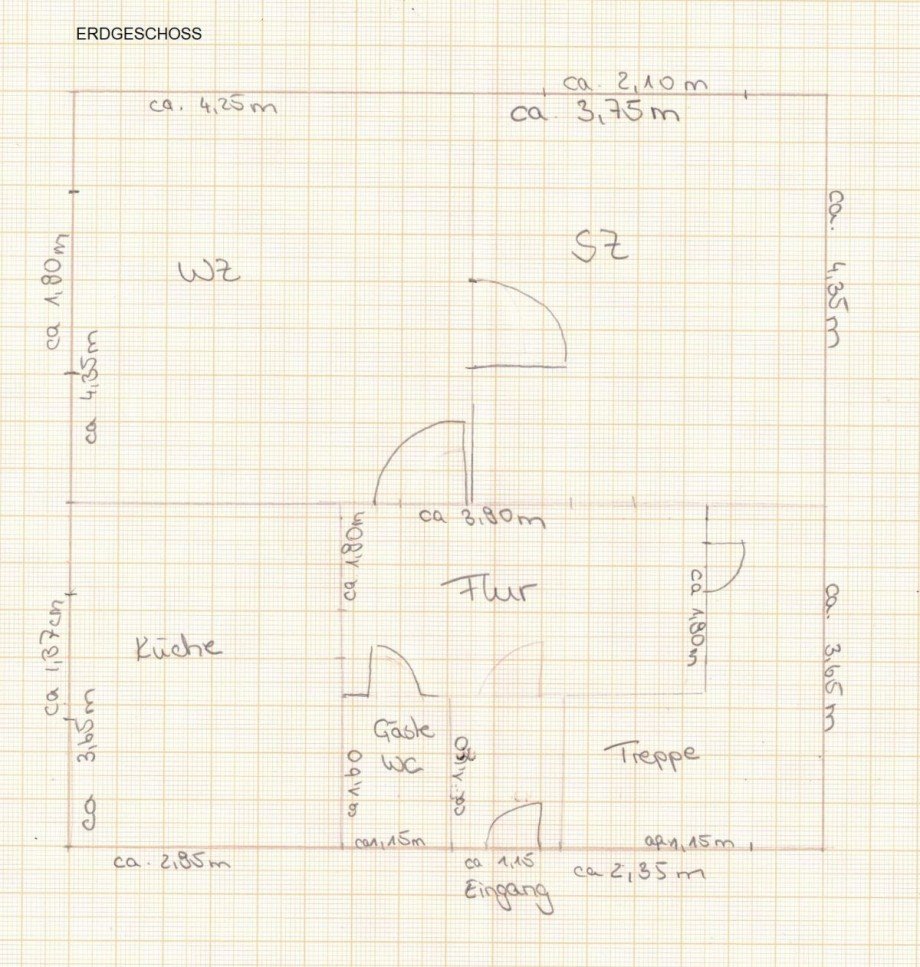 ERDGESCHOSS
ca. 2,10 m
ca. 4,25 m
ca. 3,75 m
ca. 4,35 m
ca 1,80 m
ca 4,35 m
WZ
SZ
ca 3,80 m
ca 1,80 m
Flur
ca 1,80 m
ca 1,37cm
ca 3,65 m
Küche
ca. 3,65 m
Gäste
WC
ca 1,60
Treppe
ca 1,15m
ca. 2,85 m
ca 1,15
Eingang
ca 2,35 m